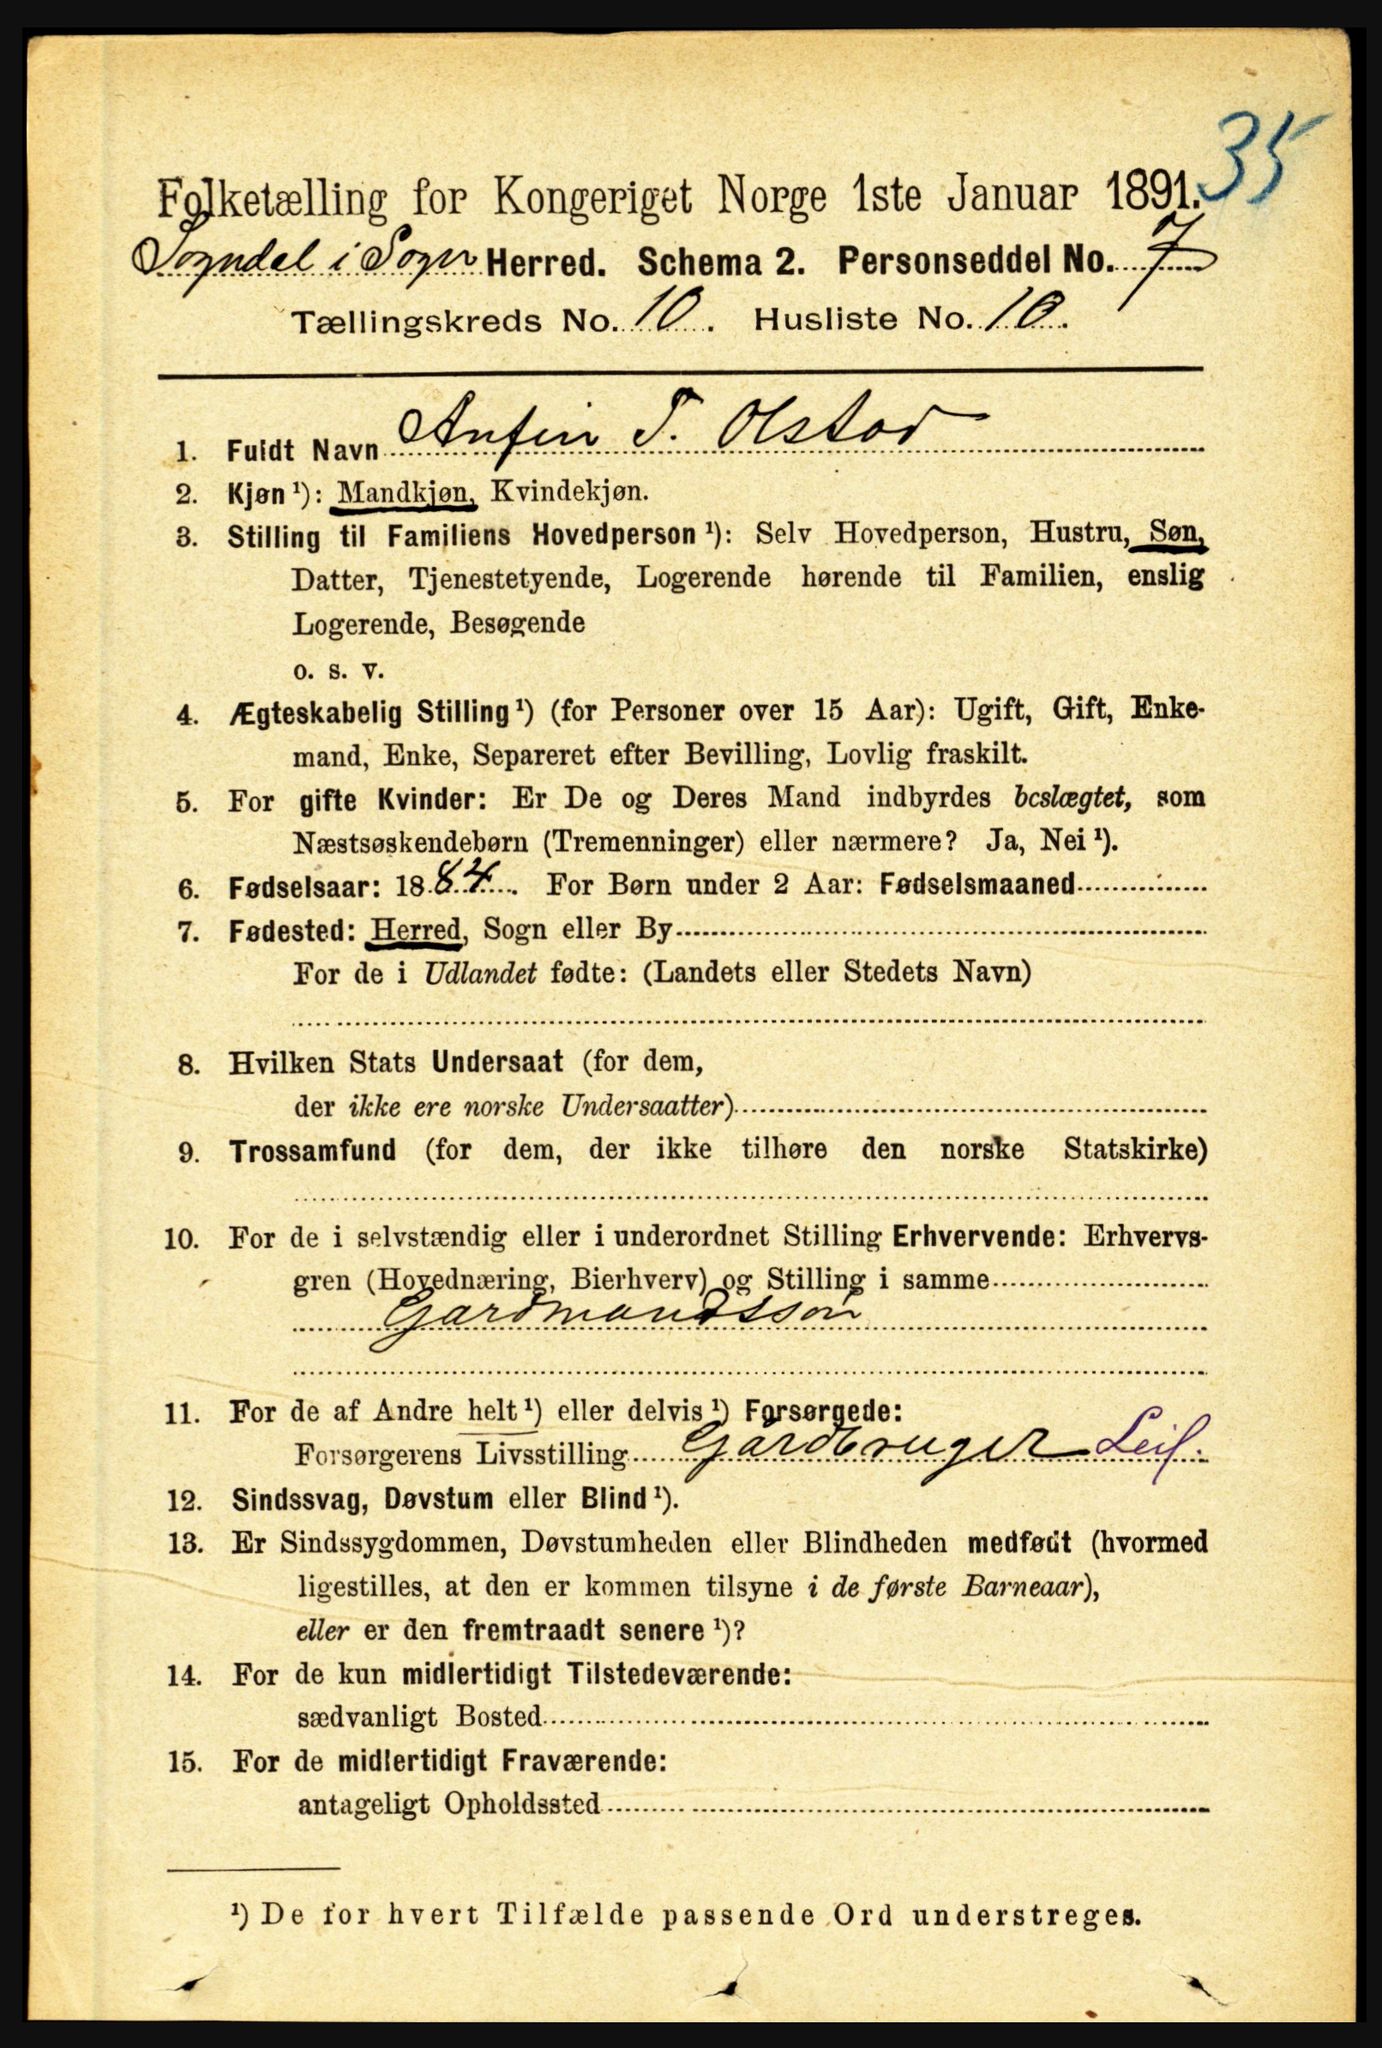 35
Folketælling for Kongeriget Norge 1ste Januar 1891.
Sogndal i Sogn Herred. Schema 2. Personseddel No. 7
Tællingskreds No. 10. Husliste No. 10.
1. Fuldt Navn Anfin T. Olstad
2. Kjøn ¹): Mandkjøn, Kvindekjøn.
3. Stilling til Familiens Hovedperson ¹): Selv Hovedperson, Hustru, Søn,
Datter, Tjenestetyende, Logerende hørende til Familien, enslig
Logerende, Besøgende
o. s. v.
4. Ægteskabelig Stilling ¹) (for Personer over 15 Aar): Ugift, Gift, Enke-
mand, Enke, Separeret efter Bevilling, Lovlig fraskilt.
5. For gifte Kvinder: Er De og Deres Mand indbyrdes beslægtet, som
Næstsøskendebørn (Tremenninger) eller nærmere? Ja, Nei ¹).
6. Fødselsaar: 1884. For Børn under 2 Aar: Fødselsmaaned
7. Fødested: Herred, Sogn eller By
For de i Udlandet fødte: (Landets eller Stedets Navn)
8. Hvilken Stats Undersaat (for dem,
der ikke ere norske Undersaatter)
9. Trossamfund (for dem, der ikke tilhøre den norske Statskirke)
10. For de i selvstændig eller i underordnet Stilling Erhvervende: Erhvervs-
gren (Hovednæring, Bierhverv) og Stilling i samme
Gardmandssøn
11. For de af Andre helt ¹) eller delvis ¹) Forsørgede:
Forsørgerens Livsstilling Gårdbruger Leil.
12. Sindssvag, Døvstum eller Blind ¹).
13. Er Sindssygdommen, Døvstumheden eller Blindheden medfødt (hvormed
ligestilles, at den er kommen tilsyne i de første Barneaar),
eller er den fremtraadt senere ¹)?
14. For de kun midlertidigt Tilstedeværende:
sædvanligt Bosted
15. For de midlertidigt Fraværende:
antageligt Opholdssted
¹) De for hvert Tilfælde passende Ord understreges.